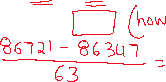 (how
86721 - 86347
63 =